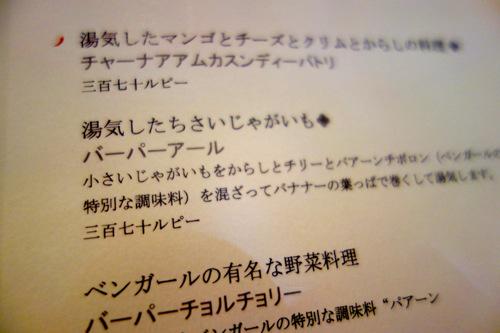 湯気したマンゴとチーズとクリムとからしの料理◆
チャーナアアムカスンディーパトリ
三百七十ルピー
湯気したちさいじゃがいも◆
バーパーアール
小さいじゃがいもをからしとチリーとパアーンチポロン（ベンガールの
特別な調味料）を混ざってバナナーの葉っぱで巻くして湯気します。
三百七十ルピー
ベンガールの有名な野菜料理
バーパーチョルチョリー
ベンガールの特別な調味料“パアーン